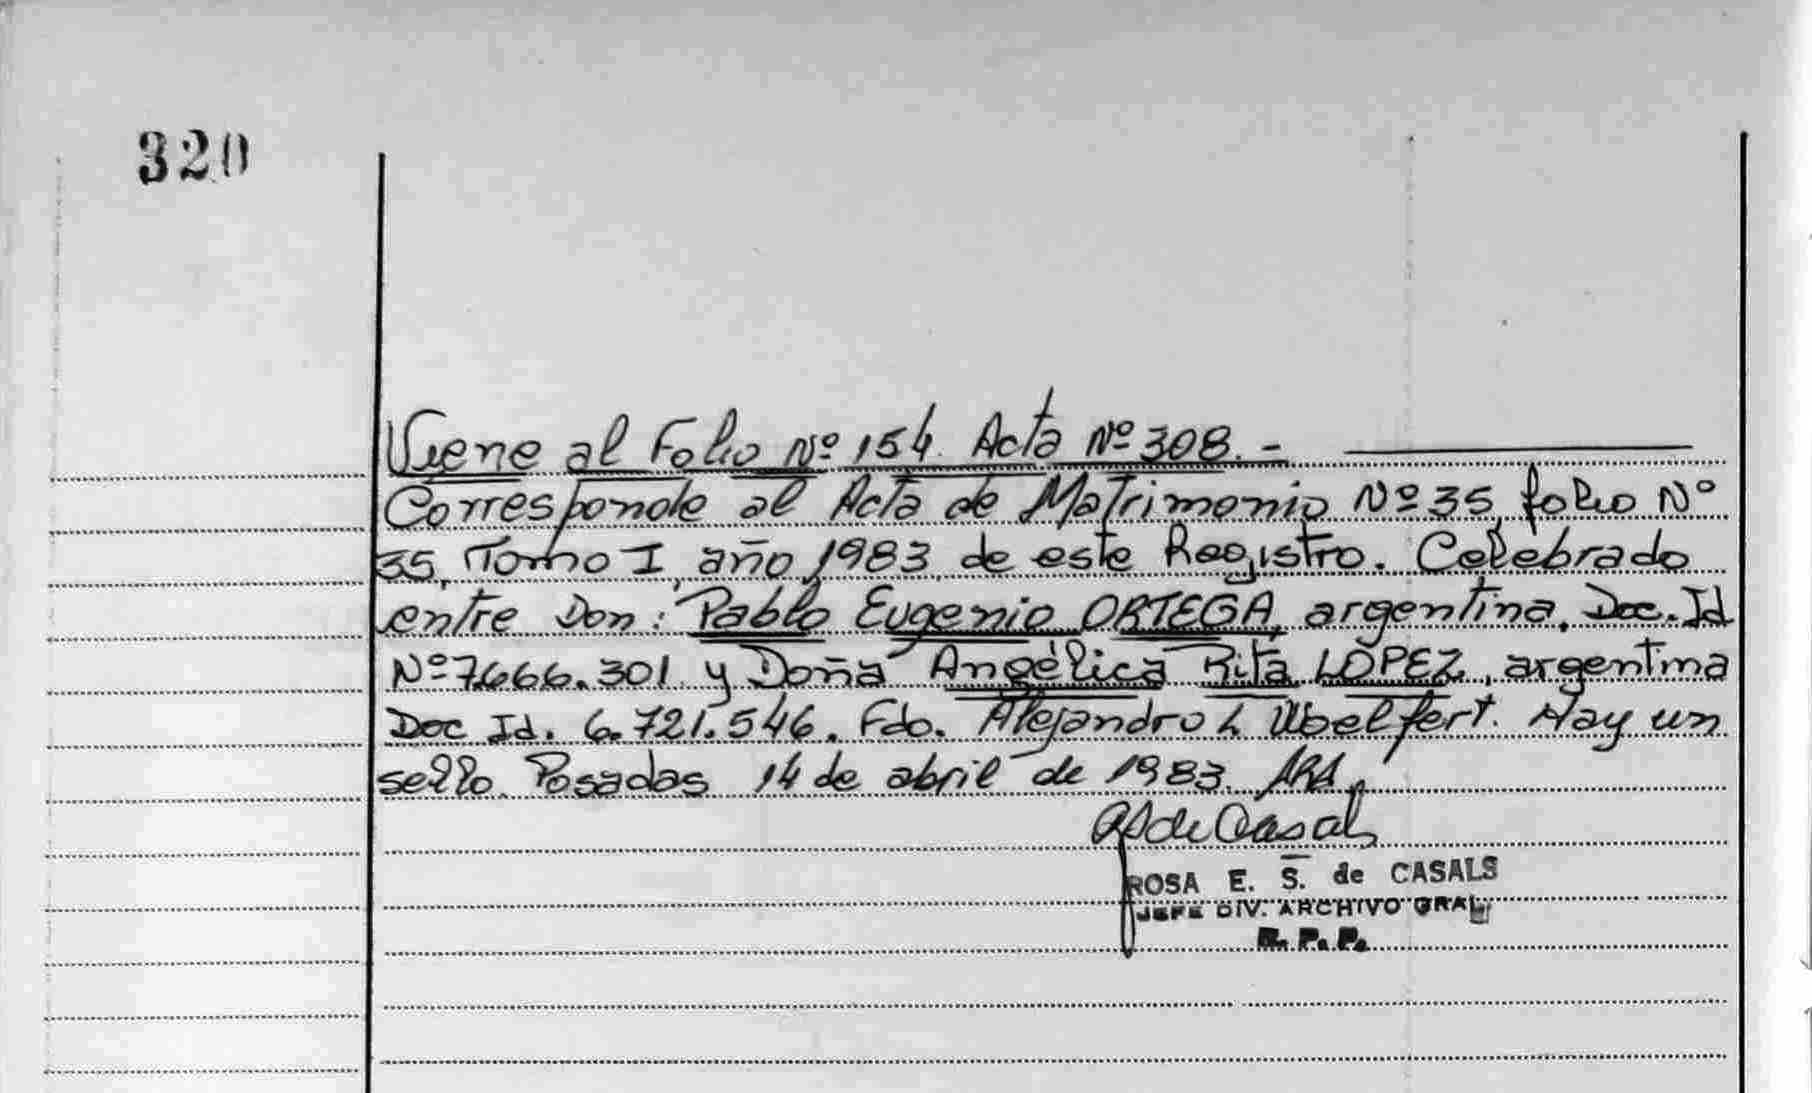 320
Viene al Folio Nº 154. Acta Nº 308. -
Corresponde al Acta de Matrimonio Nº 35, folio Nº
35, Tomo I, año 1983, de este Registro. Celebrado
entre Don: Pablo Eugenio ORTEGA, argentina. Doc. Id
Nº 7.666.301 y Doña Angélica Rita LOPEZ, argentina
Doc Id. 6.721.546. Fdo. Alejandro L. Hay un
sello. Posadas 14 de abril de 1983.
de Casals
ROSA E. S. de CASALS
JEFE DIV. ARCHIVO GRAL
R. P. P.